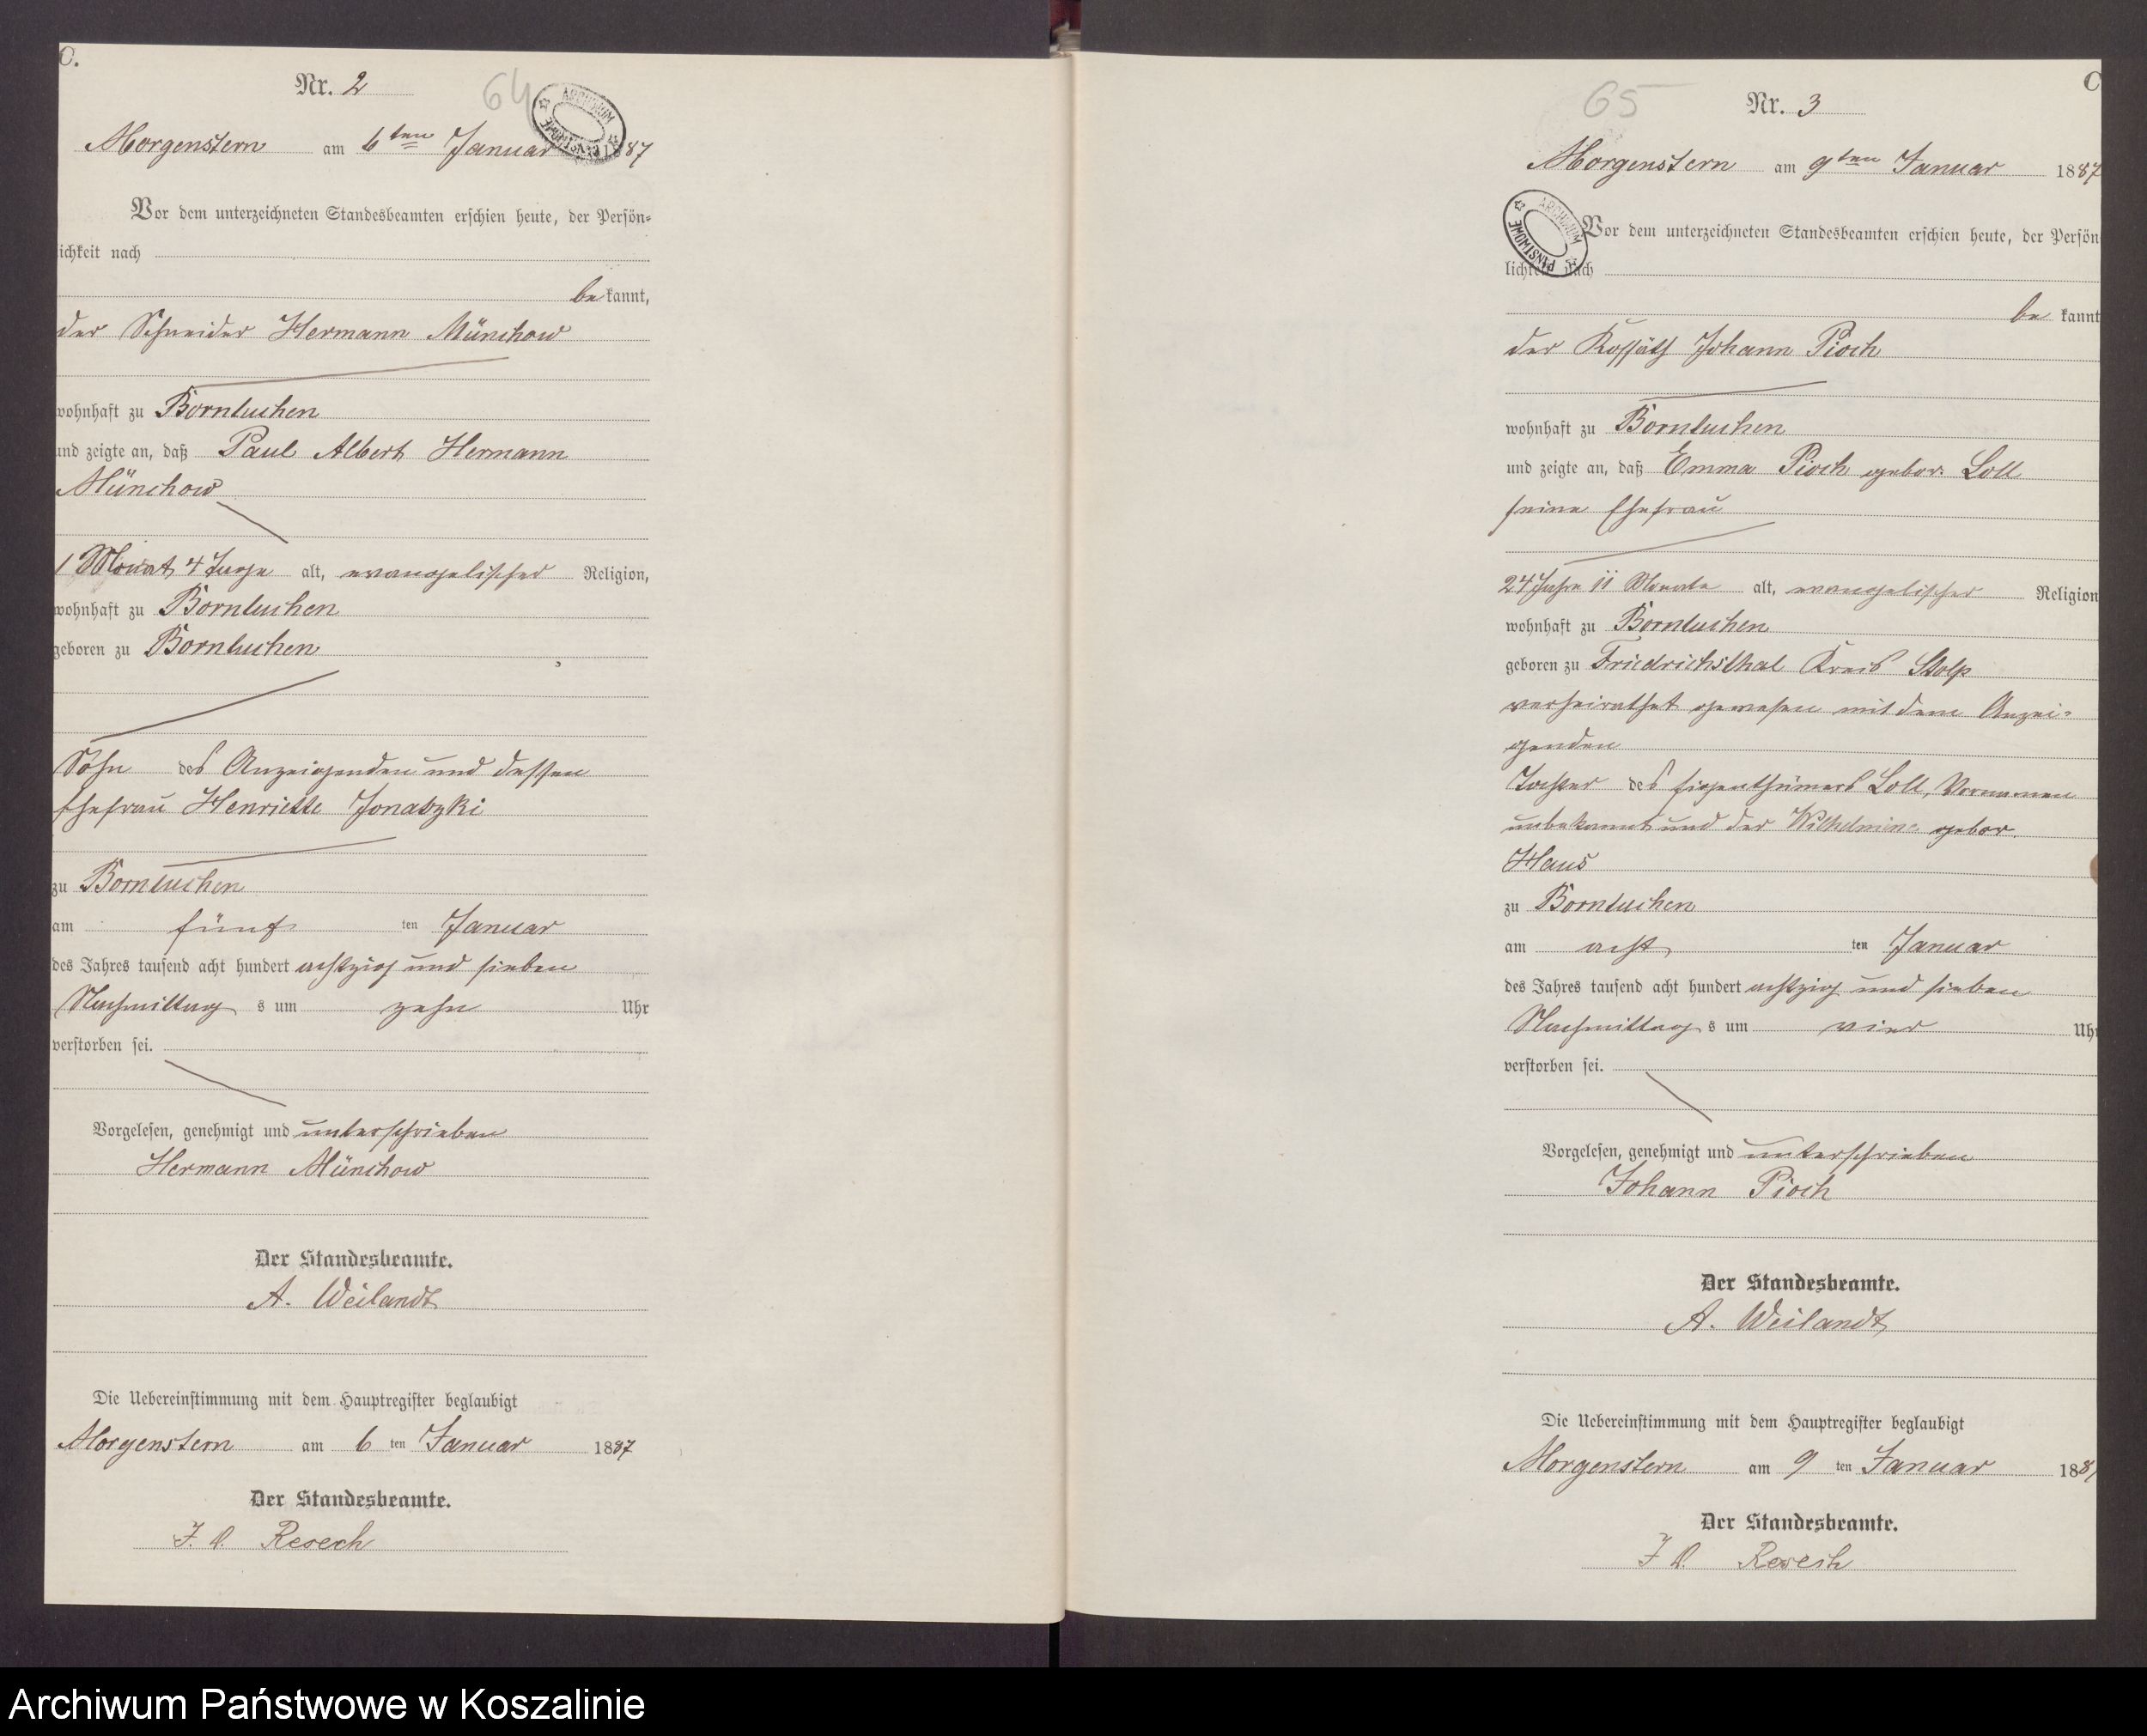 C.
Nr. 2
64
ARCHIWUM PAŃSTWOWE
Morgenstern am 6ten Januar 1887
Vor dem unterzeichneten Standesbeamten erschien heute, der Persön-
lichkeit nach
be kannt,
der Schneider Hermann Münchow
wohnhaft zu Borntuchen
und zeigte an, daß Paul Albert Hermann
Münchow
1 Monat 4 Tage alt, evangelischer Religion,
wohnhaft zu Borntuchen
geboren zu Borntuchen
Sohn des Anzeigenden und dessen
Ehefrau Henriette Jonatzki
zu Borntuchen
am fünf ten Januar
des Jahres tausend acht hundert achtzig und sieben
Nachmittag s um zehn Uhr
verstorben sei.
Vorgelesen, genehmigt und unterschrieben
Hermann Münchow
Der Standesbeamte.
A. Weilandt
Die Uebereinstimmung mit dem Hauptregister beglaubigt
Morgenstern am 6 ten Januar 1887
Der Standesbeamte.
Resech
C
65
Nr. 3
Morgenstern am 9ten Januar 1887
ARCHIWUM PAŃSTWOWE
Vor dem unterzeichneten Standesbeamten erschien heute, der Persön
lichkeit nach
be kannt
der Kossäth Johann Pioch
wohnhaft zu Borntuchen
und zeigte an, daß Emma Pioch gebor. Loll
seine Ehefrau
24 Jahre 11 Monate alt, evangelischer Religion
wohnhaft zu Borntuchen
geboren zu Friedrichsthal Kreis Stolp
verheirathet gewesen mit dem Anzei-
genden
Tochter des Eigenthümers Loll, Vornamen
unbekannt und der Wilhelmine gebor.
Haus
zu Borntuchen
am acht ten Januar
des Jahres tausend acht hundert achtzig und sieben
Nachmittag s um vier Uhr
verstorben sei.
Vorgelesen, genehmigt und unterschrieben
Johann Pioch
Der Standesbeamte.
A. Weilandt
Die Uebereinstimmung mit dem Hauptregister beglaubigt
Morgenstern am 9 ten Januar 1887
Der Standesbeamte.
Resech
Archiwum Państwowe w Koszalinie